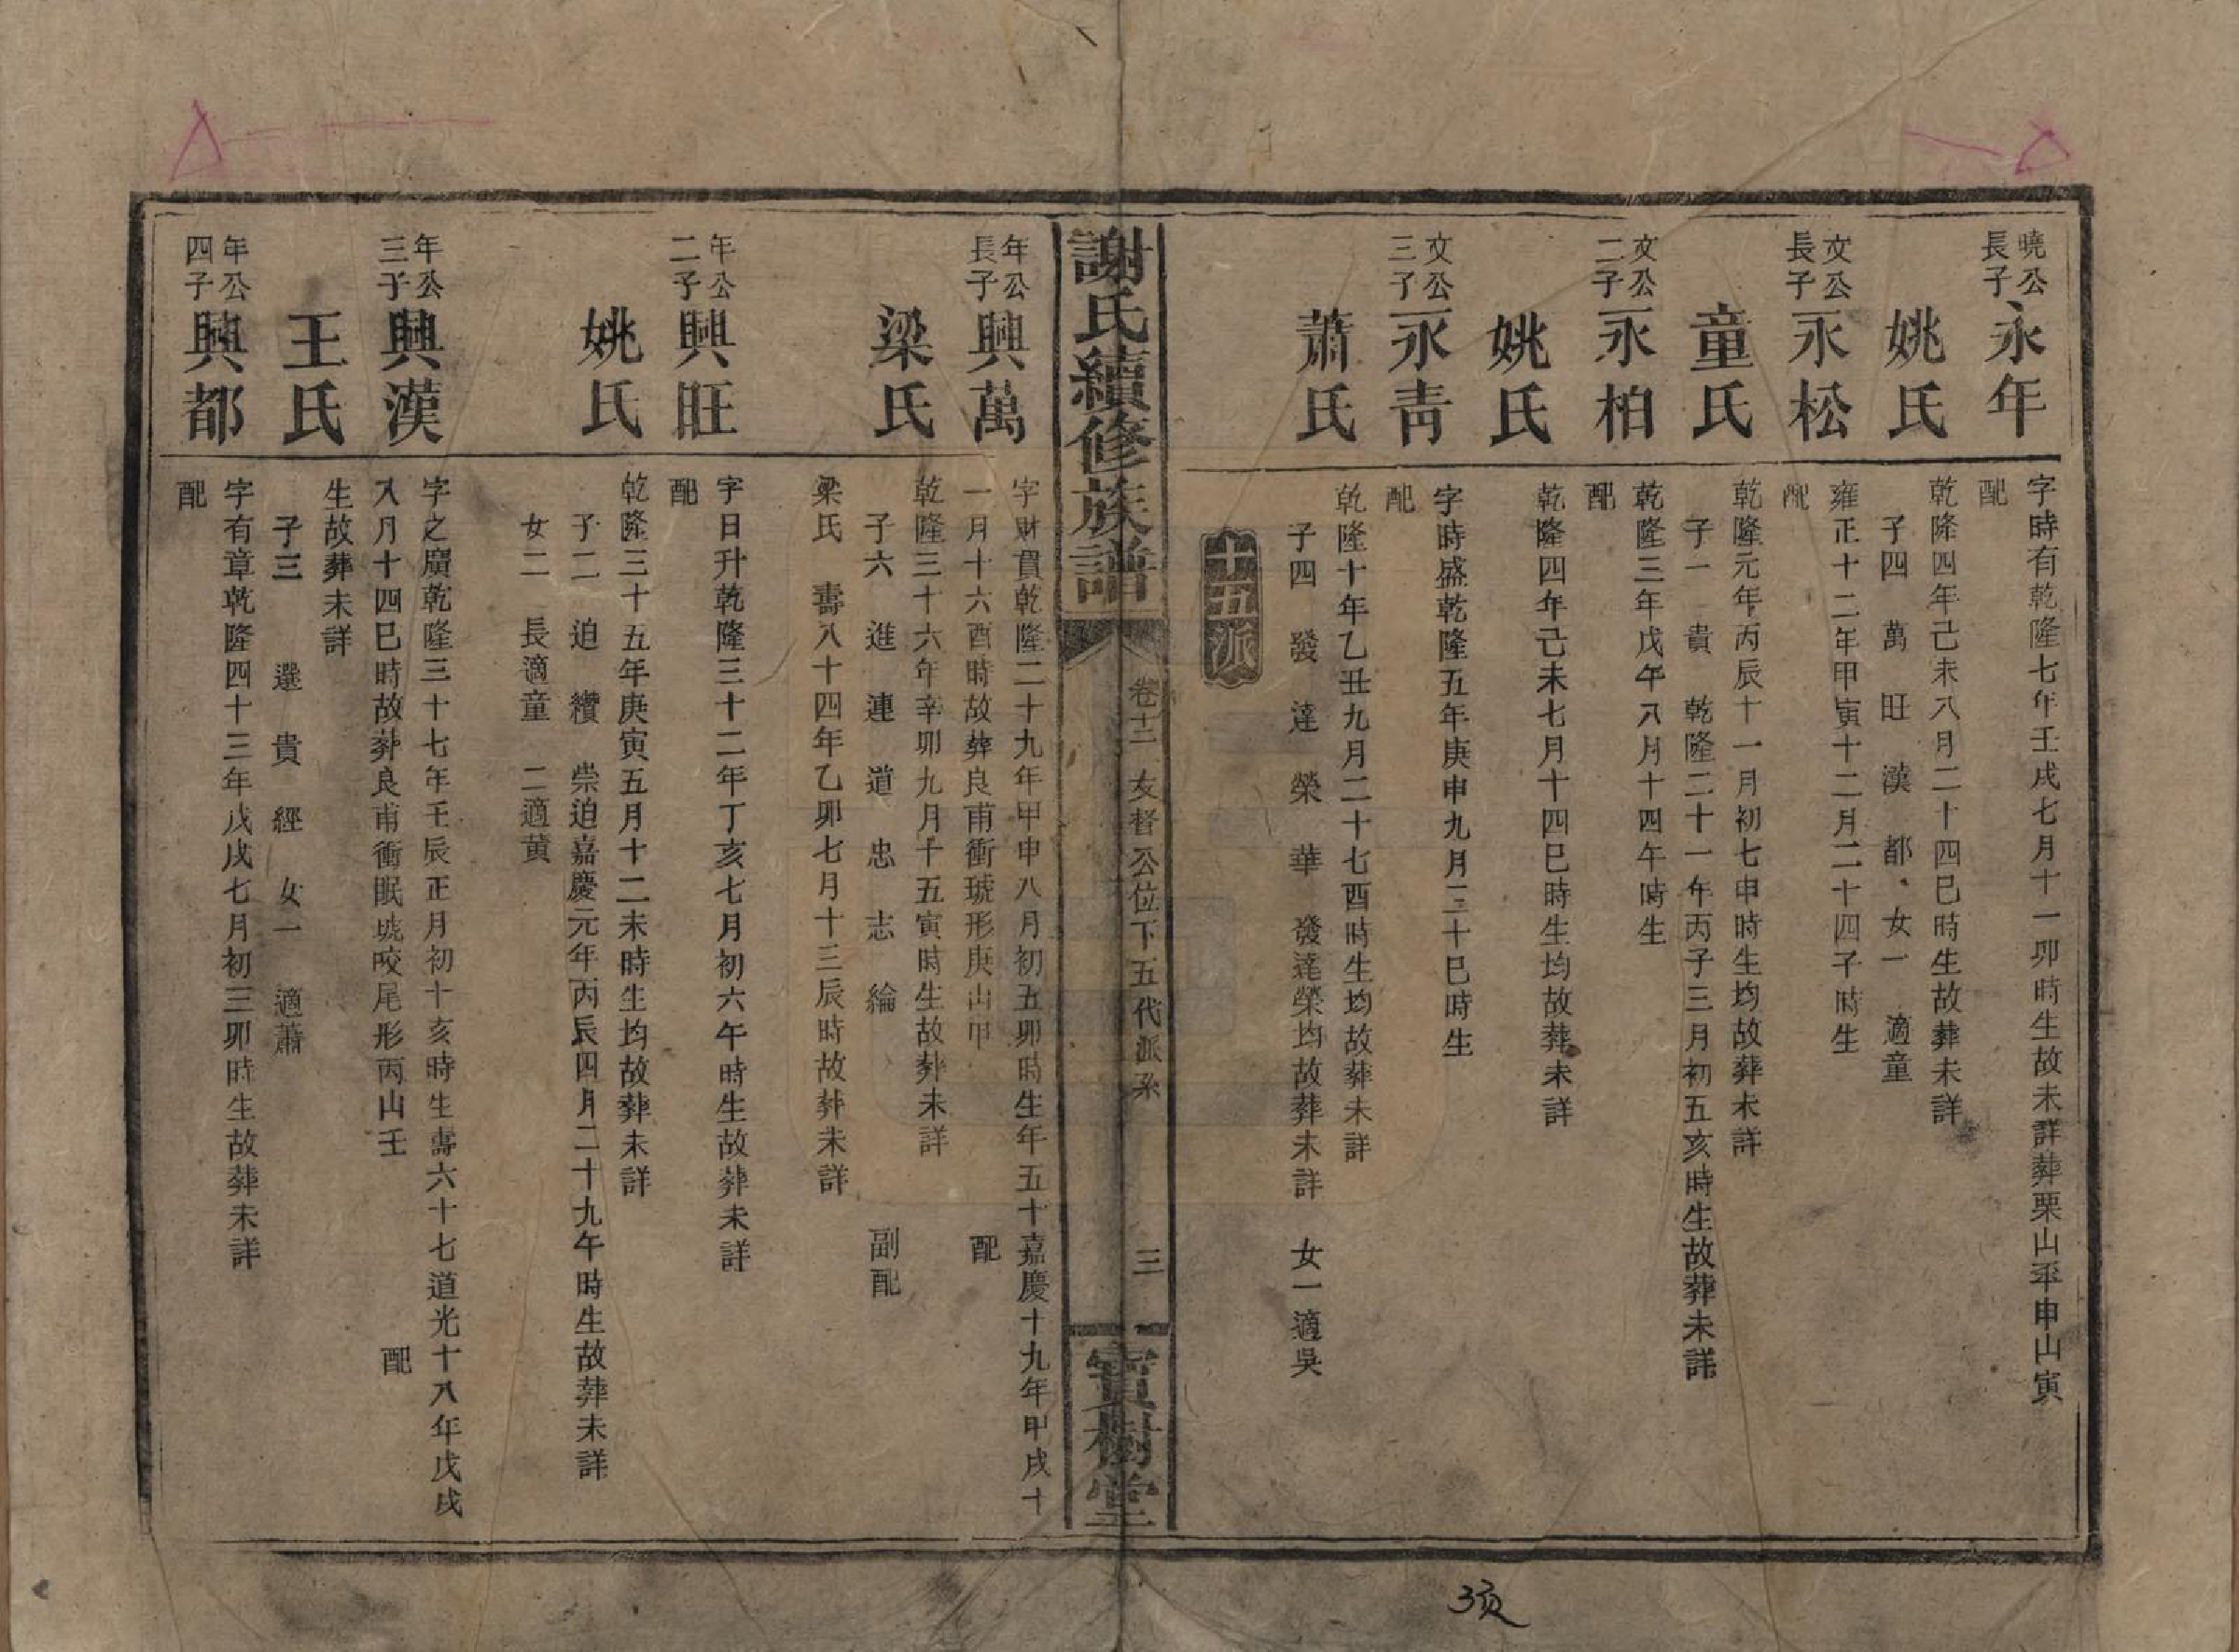 曉公長子
永年
字時有乾隆七年壬戌七月十一卯時生故未詳葬栗山坪申山寅
配
姚氏
乾隆四年己未八月二十四巳時生故葬未詳
子四 萬 旺 漢 都 女一 適童
文公長子
永松
雍正十二年甲寅十二月二十四子時生
配
童氏
乾隆元年丙辰十一月初七申時生均故葬未詳
子一 貴 乾隆二十一年丙子三月初五亥時生故葬未詳
文公二子
永柏
乾隆三年戊午八月十四午時生
配
姚氏
乾隆四年己未七月十四巳時生均故葬未詳
文公三子
永青
字時盛乾隆五年庚申九月三十巳時生
配
蕭氏
乾隆十年乙丑九月二十七酉時生均故葬未詳
子四 發 達 榮 華 發達榮均故葬未詳 女一適吳
十五派
謝氏續修族譜
卷十二 友督公位下五代派系 三
寶樹堂
年公長子
興萬
字財貫乾隆二十九年甲申八月初五卯時生年五十嘉慶十九年甲戌十
一月十六酉時故葬良甫衝琥形庚山甲 配
梁氏
乾隆三十六年辛卯九月十五寅時生故葬未詳
子六 進 連 道 忠 志 綸 副配
梁氏 壽八十四年乙卯七月十三辰時故葬未詳
年公二子
興旺
字日升乾隆三十二年丁亥七月初六午時生故葬未詳
配
姚氏
乾隆三十五年庚寅五月十二未時生均故葬未詳
子二 迫 纘 崇迫嘉慶元年丙辰四月二十九午時生故葬未詳
女二 長適童 二適黄
年公三子
興漢
字之廣乾隆三十七年壬辰正月初十亥時生壽六十七道光十八年戊戌
八月十四巳時故葬良甫衝眠琥咬尾形丙山壬 配
王氏
生故葬未詳
子三 選 貴 經 女一 適蕭
年公四子
興都
字有章乾隆四十三年戊戌七月初三卯時生故葬未詳
配